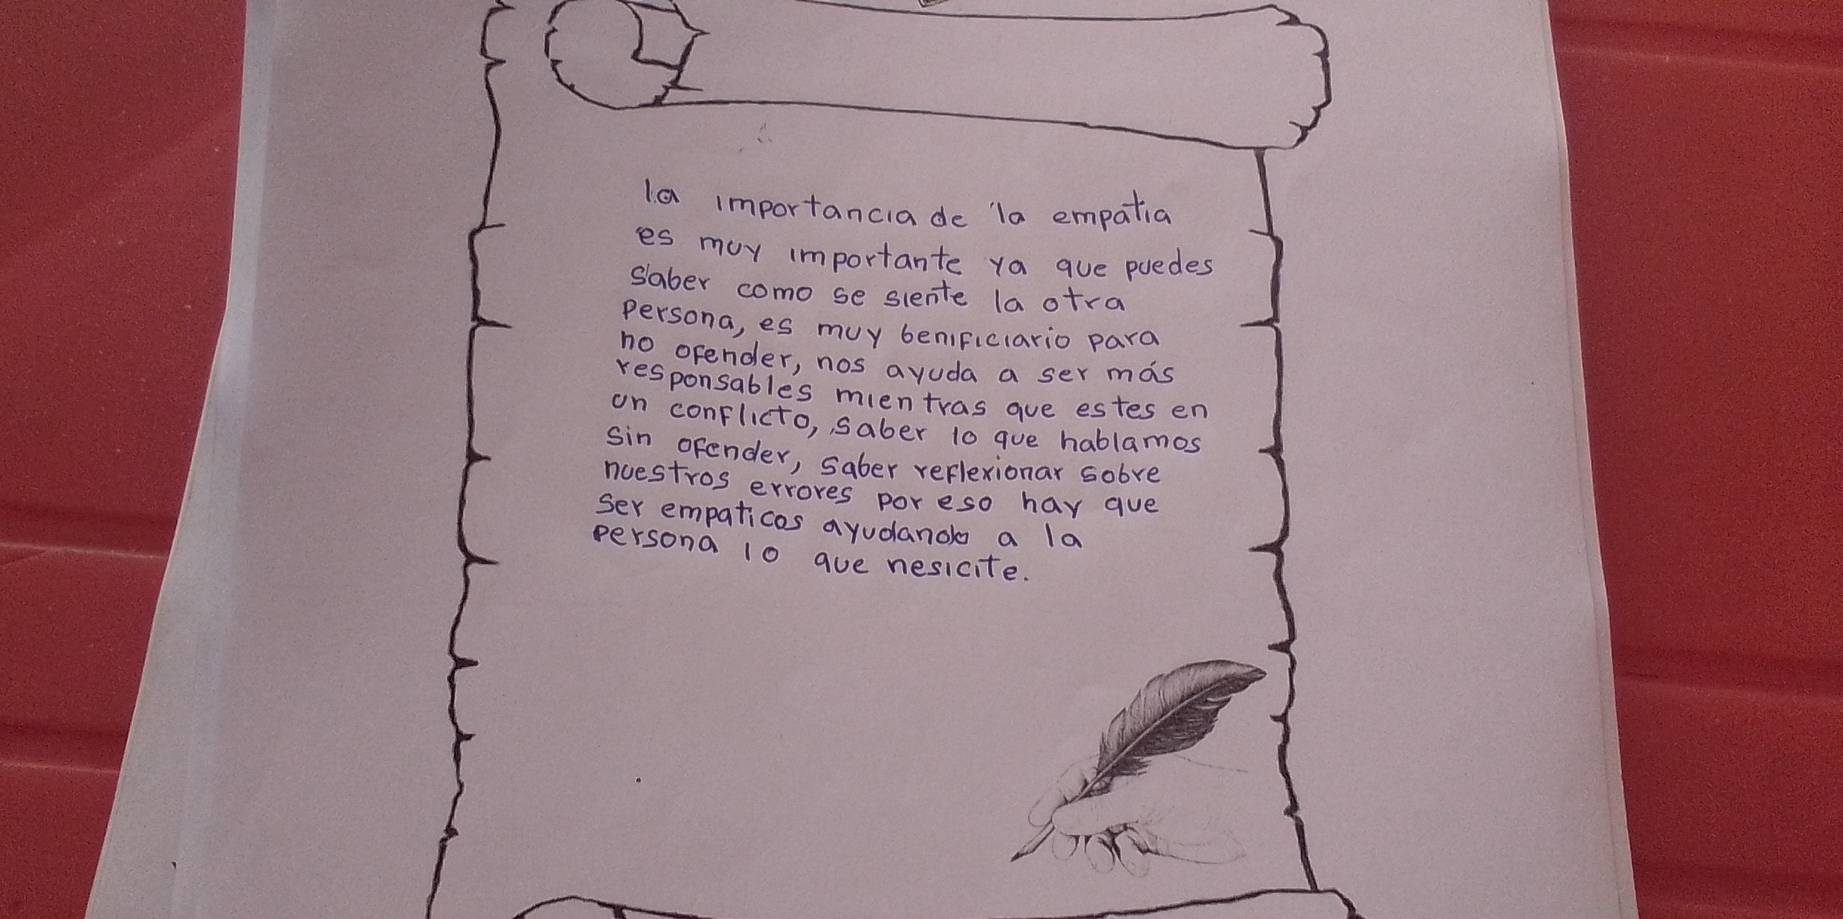 la importancia de la empatia
es muy importante ya que puedes
saber como se siente la otra
persona, es muy benificiario para
no ofender, nos ayuda a ser más
responsables mientras que estes en
un conflicto, saber lo que hablamos
sin ofender, saber reflexionar sobre
nuestros errores por eso hay que
ser empaticos ayudando a la
persona lo que nesicite.